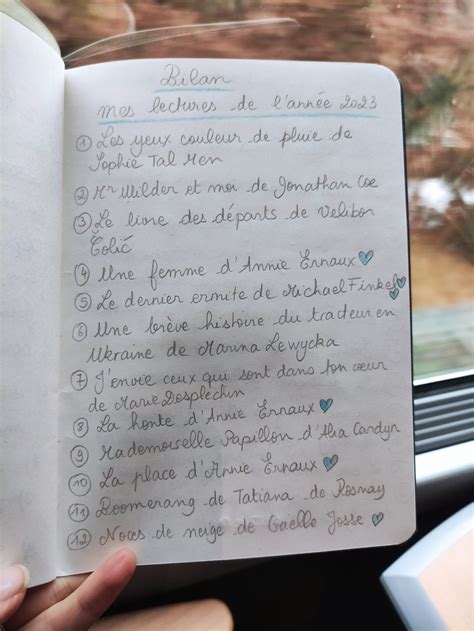 Bilan
Mes lectures de l'année 2023
① Les yeux couleur de pluie de
Sophie Tal Men
② Mr Wilder et moi de Jonathan Coe
③ Le livre des départs de Velibor
Čolić
④ Une femme d'Annie Ernaux
⑤ Le dernier ermite de Michael Finkel
⑥ Une brève histoire du tracteur en
Ukraine de Marina Lewycka
⑦ J'envie ceux qui sont dans ton cœur
de Marie Desplechin
⑧ La honte d'Annie Ernaux
⑨ Mademoiselle Papillon d'Alia Cardyn
⑩ La place d'Annie Ernaux
⑪ Boomerang de Tatiana de Rosnay
⑫ Noces de neige de Gaëlle Josse